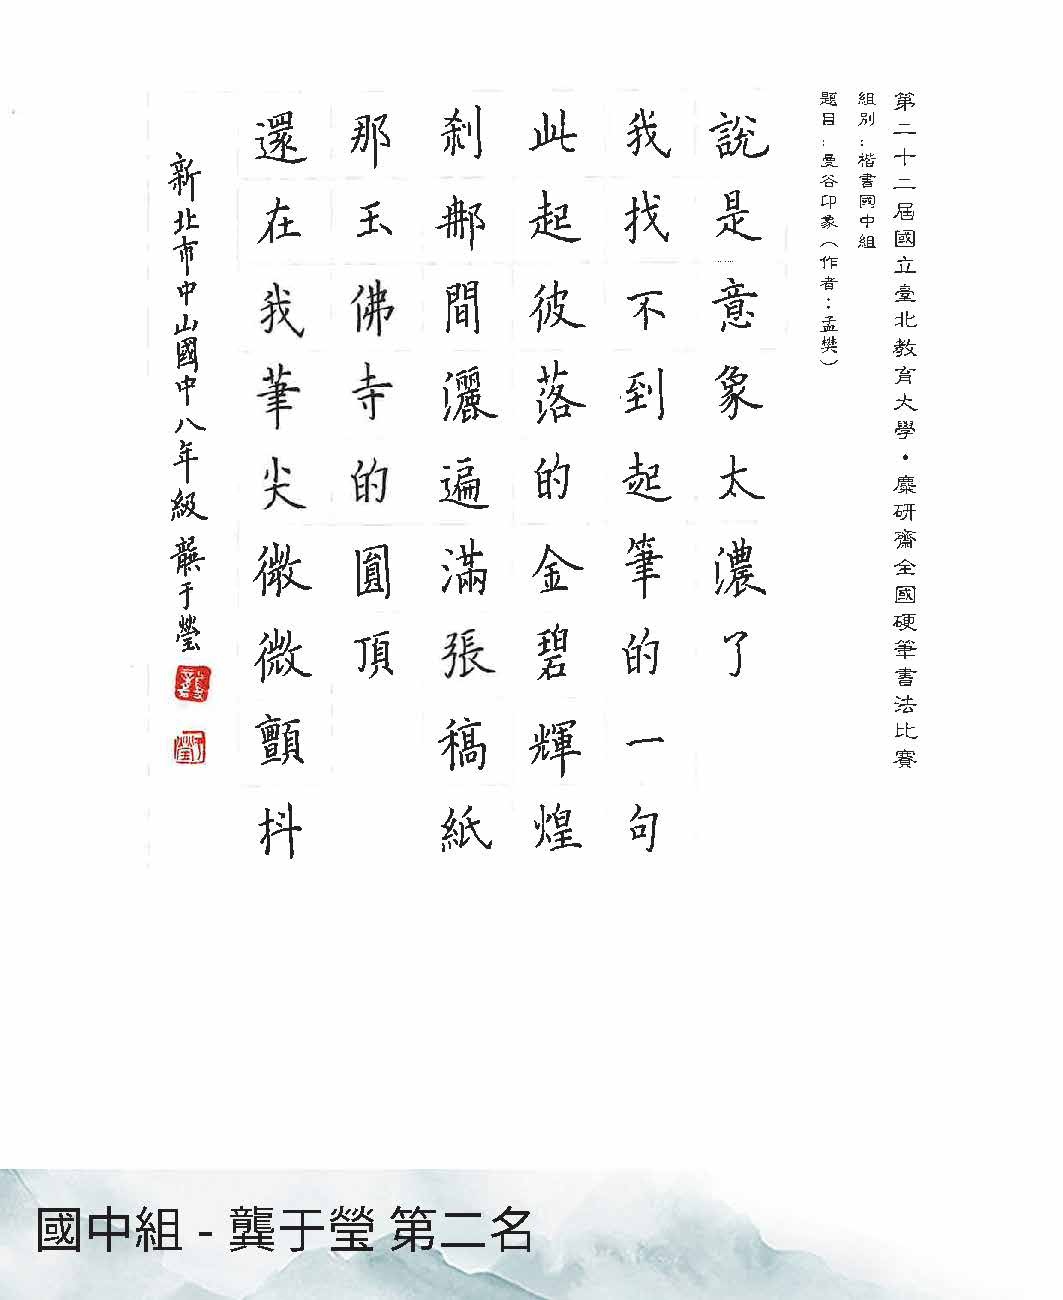 第二十二屆國立臺北教育大學・麋研齋全國硬筆書法比賽
組別：楷書國中組
題目：曼谷印象（作者：孟樊）
說是意象太濃了
我找不到起筆的一句
此起彼落的金碧輝煌
剎那間灑遍滿張稿紙
那玉佛寺的圓頂
還在我筆尖微微顫抖
新北市中山國中八年級 龔于瑩
國中組 - 龔于瑩 第二名